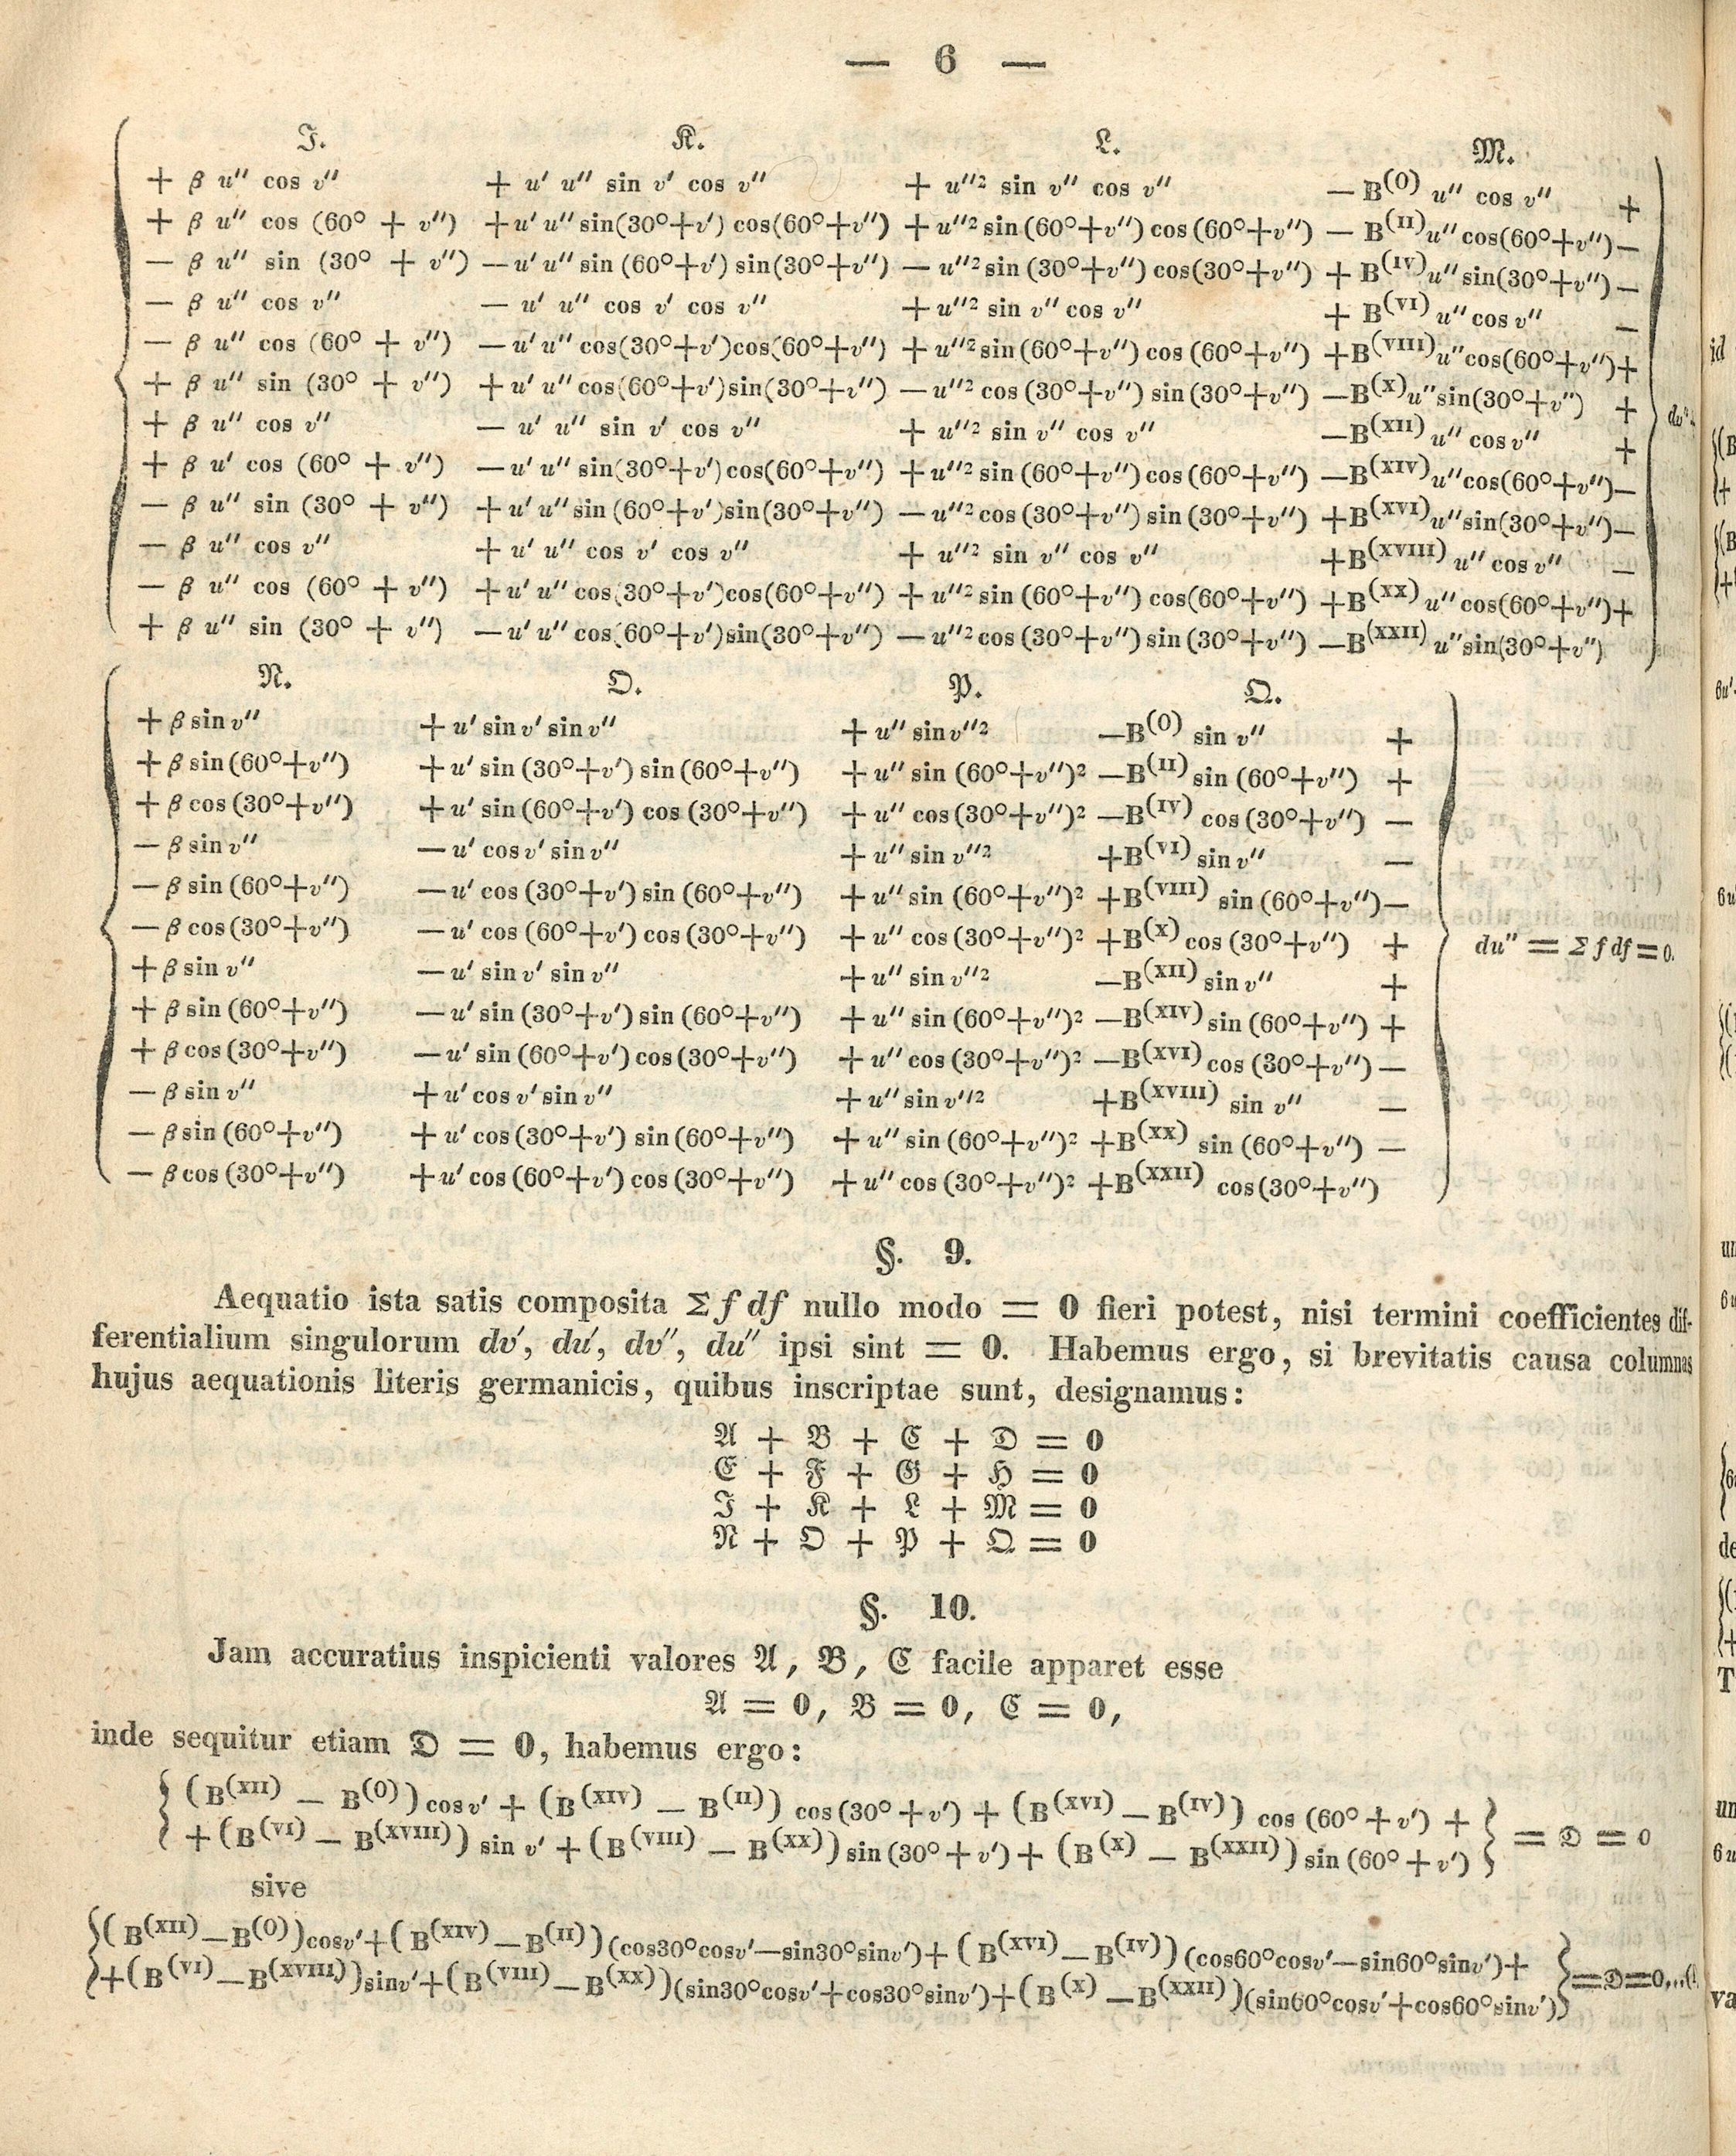 — 6 —
ℑ. 𝔎. 𝔏. 𝔐.
+ β u″ cos v″ + u′ u″ sin v′ cos v″ + u″² sin v″ cos v″ — B⁽⁰⁾ u″ cos v″ +
+ β u″ cos (60° + v″) + u′ u″ sin(30°+v′) cos(60°+v″) + u″² sin (60°+v″) cos (60°+v″) — B⁽ᴵᴵ⁾ u″ cos(60°+v″) —
— β u″ sin (30° + v″) — u′ u″ sin (60°+v′) sin(30°+v″) — u″² sin (30°+v″) cos(30°+v″) + B⁽ᴵⱽ⁾ u″ sin(30°+v″) —
— β u″ cos v″ — u′ u″ cos v′ cos v″ + u″² sin v″ cos v″ + B⁽ⱽᴵ⁾ u″ cos v″ —
— β u″ cos (60° + v″) — u′ u″ cos(30°+v′)cos(60°+v″) + u″² sin (60°+v″) cos (60°+v″) +B⁽ⱽᴵᴵᴵ⁾ u″cos(60°+v″)+
+ β u″ sin (30° + v″) + u′ u″ cos(60°+v′)sin(30°+v″) — u″² cos (30°+v″) sin (30°+v″) —B⁽ˣ⁾ u″sin(30°+v″) + dv″+
+ β u″ cos v″ — u′ u″ sin v′ cos v″ + u″² sin v″ cos v″ —B⁽ˣᴵᴵ⁾ u″ cos v″ +
+ β u′ cos (60° + v″) — u′ u″ sin(30°+v′) cos(60°+v″) + u″² sin (60°+v″) cos(60°+v″) —B⁽ˣᴵⱽ⁾ u″cos(60°+v″)—
— β u″ sin (30° + v″) + u′ u″ sin (60°+v′)sin(30°+v″) — u″² cos (30°+v″) sin (30°+v″) +B⁽ˣⱽᴵ⁾ u″sin(30°+v″)—
— β u″ cos v″ + u′ u″ cos v′ cos v″ + u″² sin v″ cos v″ +B⁽ˣⱽᴵᴵᴵ⁾ u″ cos v″ —
— β u″ cos (60° + v″) + u′ u″ cos(30°+v′)cos(60°+v″) + u″² sin (60°+v″) cos(60°+v″) +B⁽ˣˣ⁾ u″ cos(60°+v″)+
+ β u″ sin (30° + v″) — u′ u″ cos(60°+v′)sin(30°+v″) — u″² cos (30°+v″) sin (30°+v″) —B⁽ˣˣᴵᴵ⁾ u″sin(30°+v″)
𝔑. 𝔒. 𝔓. 𝔔.
+ β sin v″ + u′ sin v′ sin v″ + u″ sin v″² —B⁽⁰⁾ sin v″ +
+ β sin (60°+v″) + u′ sin (30°+v′) sin (60°+v″) + u″ sin (60°+v″)² —B⁽ᴵᴵ⁾ sin (60°+v″) +
+ β cos (30°+v″) + u′ sin (60°+v′) cos (30°+v″) + u″ cos (30°+v″)² —B⁽ᴵⱽ⁾ cos (30°+v″) —
— β sin v″ — u′ cos v′ sin v″ + u″ sin v″² +B⁽ⱽᴵ⁾ sin v″ —
— β sin (60°+v″) — u′ cos (30°+v′) sin (60°+v″) + u″ sin (60°+v″)² +B⁽ⱽᴵᴵᴵ⁾ sin (60°+v″)—
— β cos (30°+v″) — u′ cos (60°+v′) cos (30°+v″) + u″ cos (30°+v″)² +B⁽ˣ⁾ cos (30°+v″) + du″ = Σ f df = 0.
+ β sin v″ — u′ sin v′ sin v″ + u″ sin v″² —B⁽ˣᴵᴵ⁾ sin v″ +
+ β sin (60°+v″) — u′ sin (30°+v′) sin (60°+v″) + u″ sin (60°+v″)² —B⁽ˣᴵⱽ⁾ sin (60°+v″) +
+ β cos (30°+v″) — u′ sin (60°+v′) cos (30°+v″) + u″ cos (30°+v″)² —B⁽ˣⱽᴵ⁾ cos (30°+v″) —
— β sin v″ + u′ cos v′ sin v″ + u″ sin v″² +B⁽ˣⱽᴵᴵᴵ⁾ sin v″ —
— β sin (60°+v″) + u′ cos (30°+v′) sin (60°+v″) + u″ sin (60°+v″)² +B⁽ˣˣ⁾ sin (60°+v″) —
— β cos (30°+v″) + u′ cos (60°+v′) cos (30°+v″) + u″ cos (30°+v″)² +B⁽ˣˣᴵᴵ⁾ cos(30°+v″)
§. 9.
Aequatio ista satis composita Σ f df nullo modo = 0 fieri potest, nisi termini coefficientes dif-
ferentialium singulorum dv′, du′, dv″, du″ ipsi sint = 0. Habemus ergo, si brevitatis causa columnas
hujus aequationis literis germanicis, quibus inscriptae sunt, designamus:
𝔄 + 𝔅 + ℭ + 𝔇 = 0
𝔈 + 𝔉 + 𝔊 + ℌ = 0
ℑ + 𝔎 + 𝔏 + 𝔐 = 0
𝔑 + 𝔒 + 𝔓 + 𝔔 = 0
§. 10.
Jam accuratius inspicienti valores 𝔄, 𝔅, ℭ facile apparet esse
𝔄 = 0, 𝔅 = 0, ℭ = 0,
inde sequitur etiam 𝔇 = 0, habemus ergo:
{ (B⁽ˣᴵᴵ⁾ — B⁽⁰⁾) cos v′ + (B⁽ˣᴵⱽ⁾ — B⁽ᴵᴵ⁾) cos (30° + v′) + (B⁽ˣⱽᴵ⁾ — B⁽ᴵⱽ⁾) cos (60° + v′) +
+ (B⁽ⱽᴵ⁾ — B⁽ˣⱽᴵᴵᴵ⁾) sin v′ + (B⁽ⱽᴵᴵᴵ⁾ — B⁽ˣˣ⁾) sin (30° + v′) + (B⁽ˣ⁾ — B⁽ˣˣᴵᴵ⁾) sin (60° + v′) } = 𝔇 = 0
sive
{(B⁽ˣᴵᴵ⁾—B⁽⁰⁾)cosv′+(B⁽ˣᴵⱽ⁾—B⁽ᴵᴵ⁾)(cos30°cosv′—sin30°sinv′)+(B⁽ˣⱽᴵ⁾—B⁽ᴵⱽ⁾)(cos60°cosv′—sin60°sinv′)+
+(B⁽ⱽᴵ⁾—B⁽ˣⱽᴵᴵᴵ⁾)sinv′+(B⁽ⱽᴵᴵᴵ⁾—B⁽ˣˣ⁾)(sin30°cosv′+cos30°sinv′)+(B⁽ˣ⁾—B⁽ˣˣᴵᴵ⁾)(sin60°cosv′+cos60°sinv′)}=𝔇=0...(